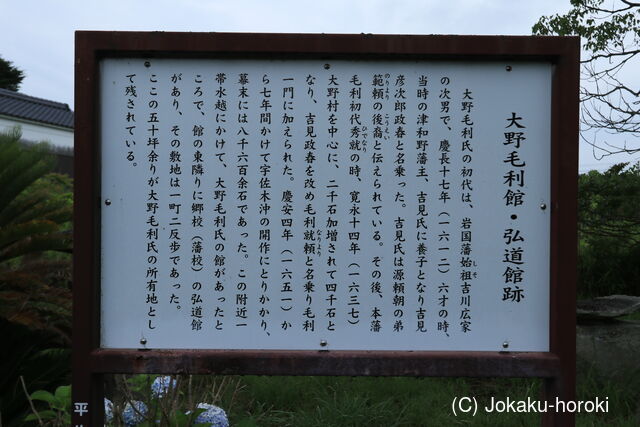 大野毛利館・弘道館跡
大野毛利氏の初代は、岩国藩始祖吉川広家
の次男で、慶長十七年（一六一二）六才の時、
当時の津和野藩主、吉見氏に養子となり吉見
彦次郎政春と名乗った。吉見氏は源頼朝の弟
範頼の後裔と伝えられている。その後、本藩
毛利初代秀就の時、寛永十四年（一六三七）
大野村を中心に、二千石加増されて四千石と
なり、吉見政春を改め毛利就頼と名乗り毛利
一門に加えられた。慶安四年（一六五一）か
ら七年間かけて宇佐木沖の開作にとりかかり、
幕末には八千六百余石であった。この附近一
帯水越にかけて、大野毛利氏の館があったと
ころで、館の東隣りに郷校（藩校）の弘道館
があり、その敷地は一町二反歩であった。
ここの五十坪余りが大野毛利氏の所有地とし
て残されている。
平
(C) Jokaku-horoki